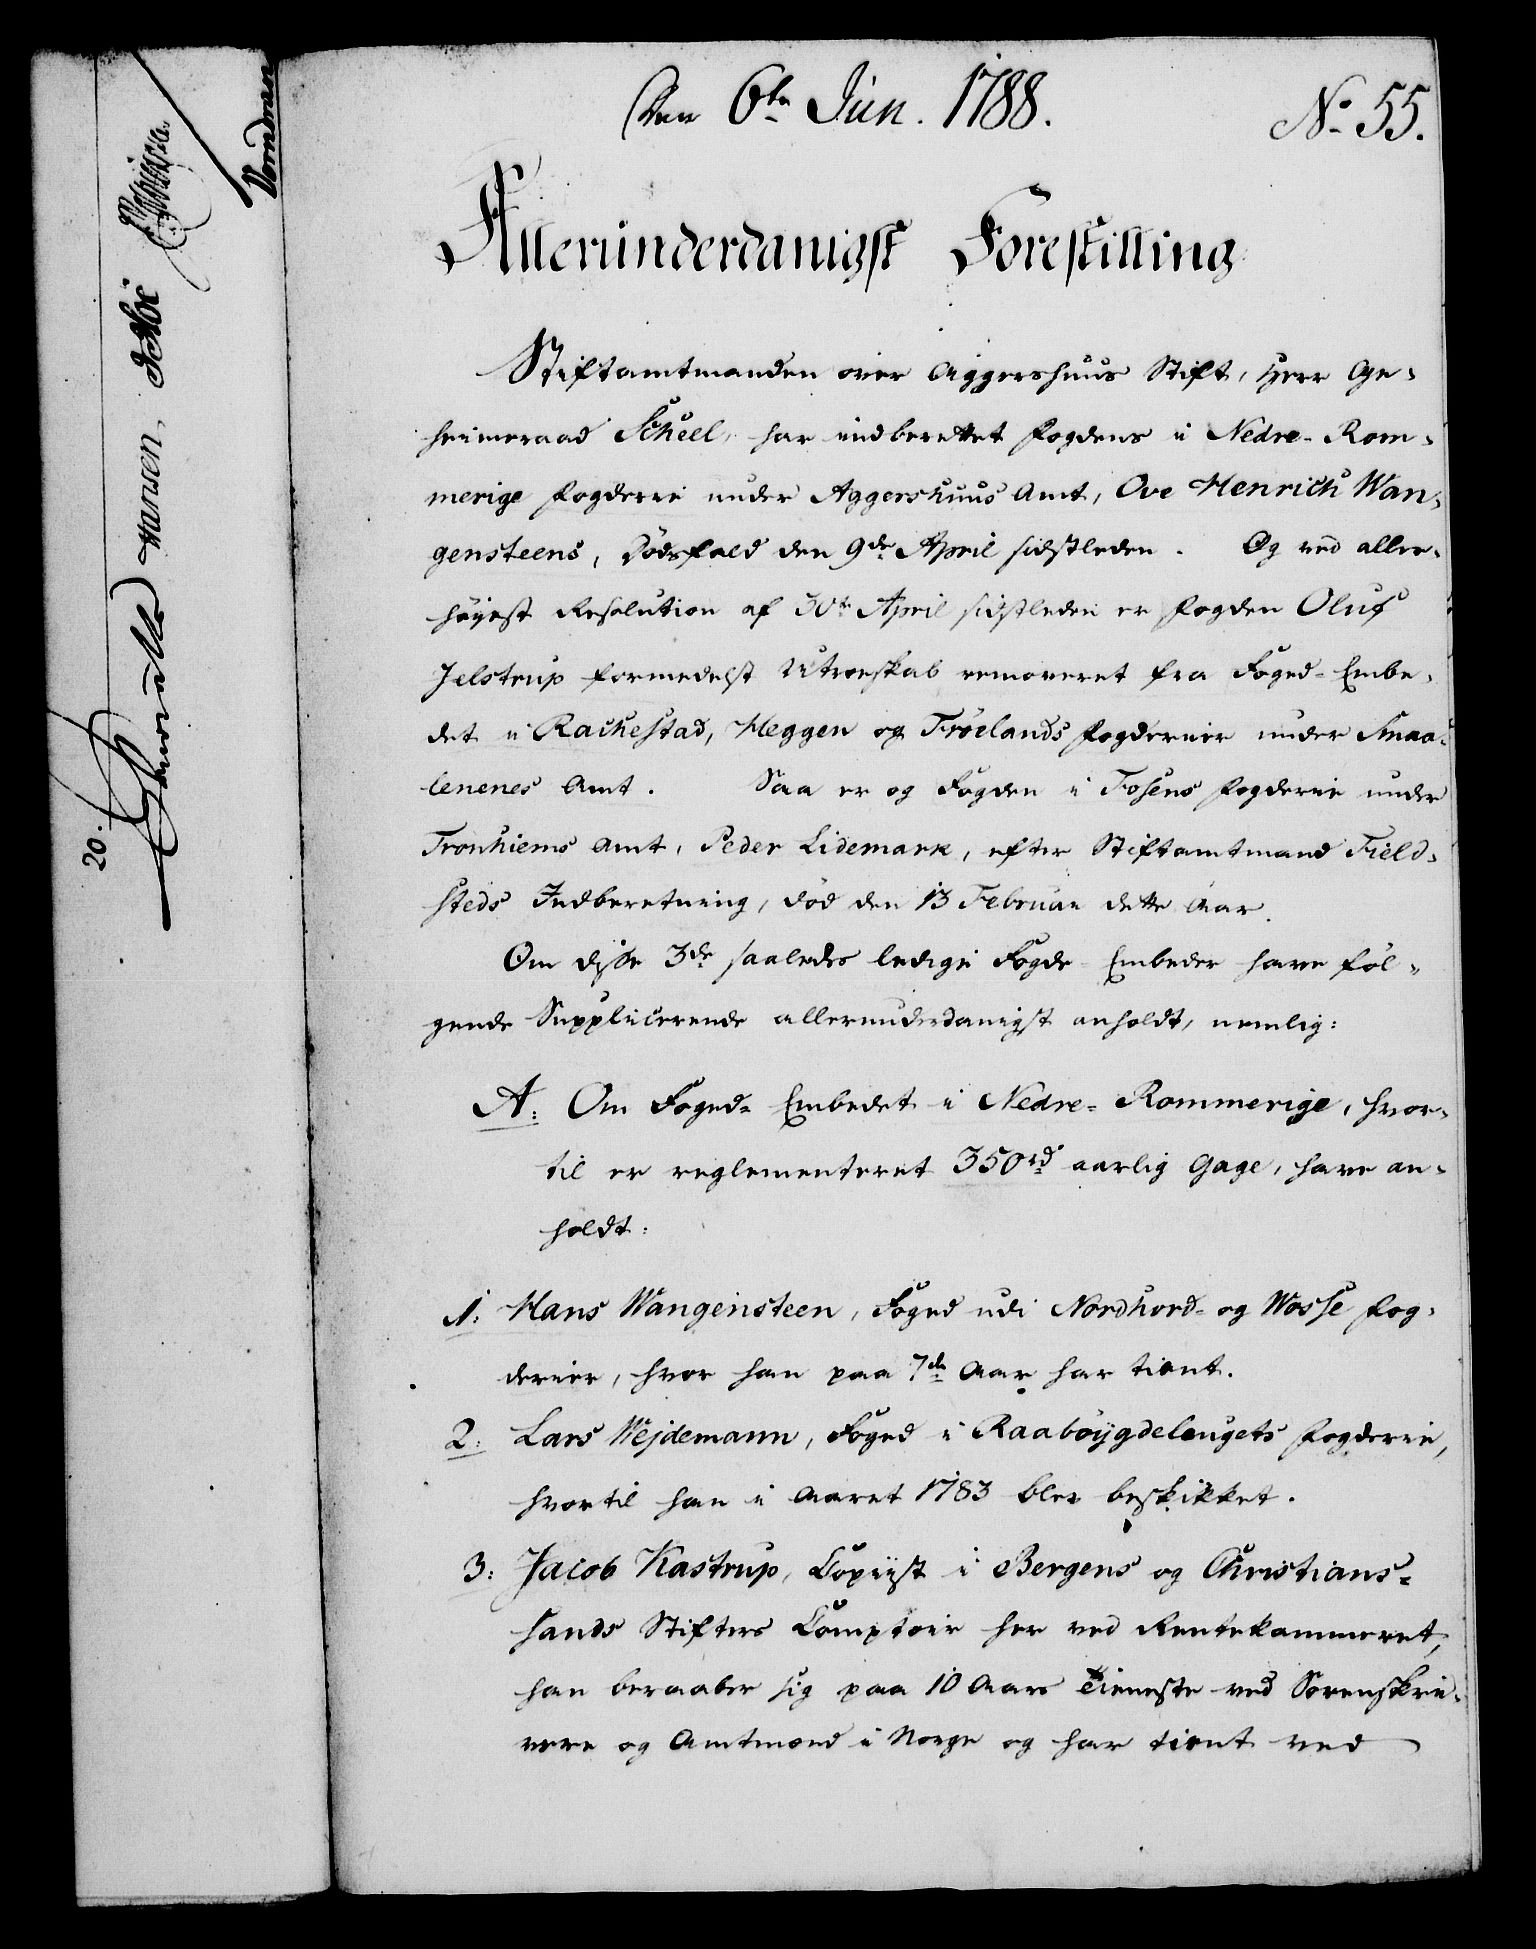 Den 6te Jun. 1788.
No 55.
Allerunderdanigst Forestilling
Stiftamtmanden over Aggershuus Stift, Herr Ge-
heimeraad Scheel, har indberettet Fogdens i Nedre-Rom-
merige Fogderie under Aggershuus Amt, Ove Henrich Wan-
gensteens, Dödsfald den 9de April sidstleden. Og ved aller-
höyest Resolution af 30te April sidstleden er Fogden Oluf
Jelstrup formedelst Utroeskab removeret fra Foged-Embe-
det i Rackestad, Heggen og Fröelands Fogderier under Smaa-
lenenes Amt. Saa er og Fogden i Fosens Fogderie under
Tronhiems Amt, Peder Lidemark, efter Stiftamtmand Field-
steds Indberetning, död den 13 Februar dette Aar.
Om disse 3de saaledes ledige Fogde-Embeder have föl-
gende Supplicerende allerunderdanigst anholdt, nemlig:
A: Om Foged-Embedet i Nedre-Rommerige, hvor-
til er reglementeret 350rd aarlig Gage, have an-
holdt:
1: Hans Wangensteen, Foged udi Nordhord- og Wosse Fog-
derier, hvor han paa 7de Aar har tient.
2: Lars Wejdemann, Foged i Raaböygdelaugets Fogderie,
hvortil han i Aaret 1783 blev beskikket.
3: Jacob Kastrup, Copiist i Bergens og Christians-
sands Stifters Comptoir her ved Rentekammeret,
han beraaber sig paa 10 Aars Tieneste ved Sorenskri-
vere og Amtmænd i Norge og har tient ved
20.
Hansen,
Vormdran